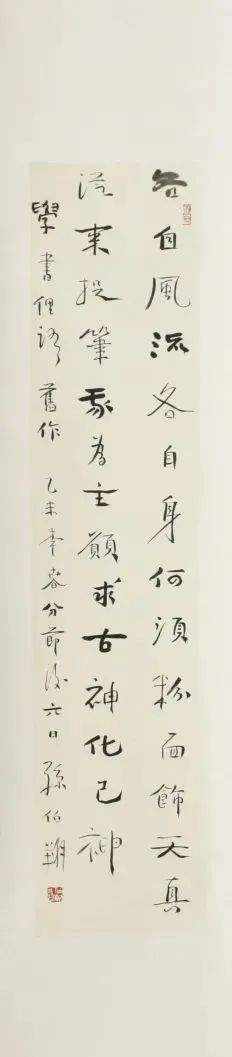 各自風流各自身何須粉面飾天真
從來提筆我為主願求古神化己神
學書俚語舊作 乙未年春分節後六日 孫伯翔